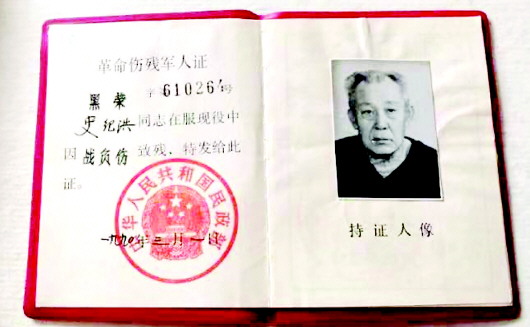 革命伤残军人证
黑荣字第610261号
史纪洪同志在服现役中
因战负伤致残，特发给此
证。
中华人民共和国民政部
一九九〇年三月一日
持证人像